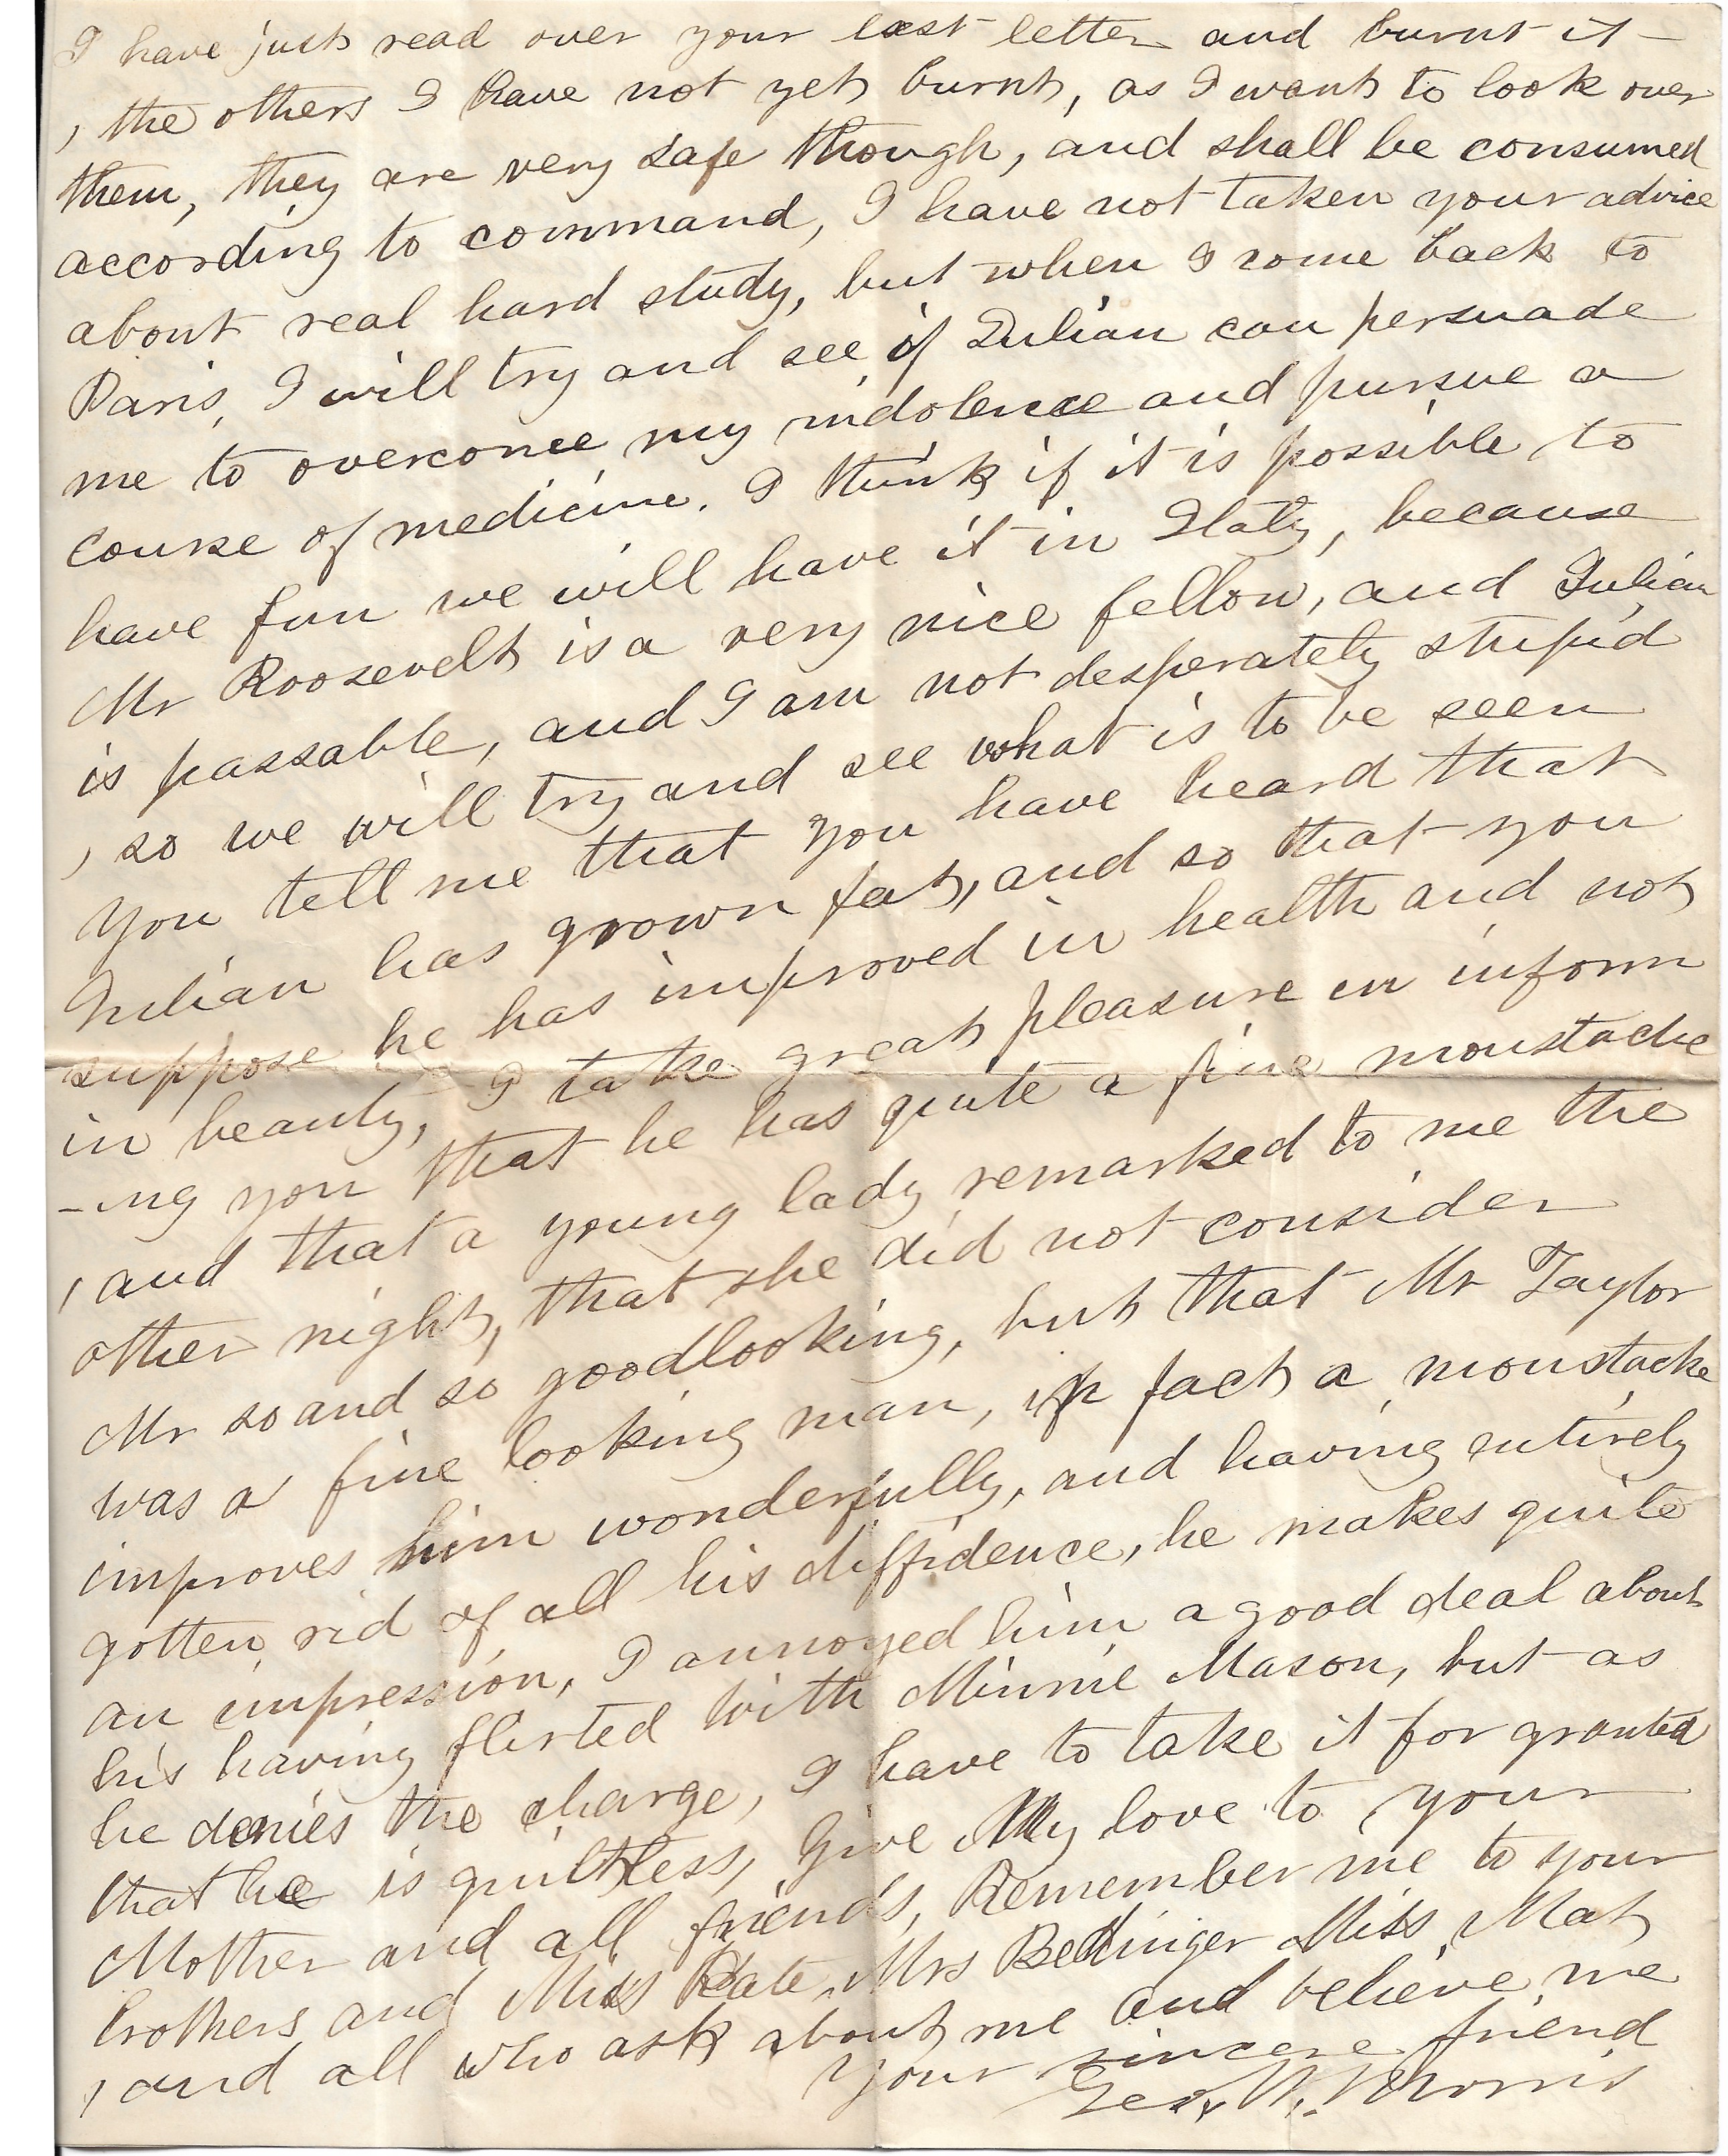 I have just read over your last letter and burnt it –
, the others I have not yet burnt, as I want to look over
them, they are very safe though, and shall be consumed
according to command, I have not taken your advice
about real hard study, but when I come back to
Paris, I will try and see if Julian can persuade
me to overcome my indolence and pursue a
course of medicine. I think if it is possible to
have fun we will have it in Italy, because
Mr Roosevelt is a very nice fellow, and Julian
is passable, and I am not desperately stupid
, so we will try and see what is to be seen
You tell me that you have heard that
Julian has grown fat, and so that you
suppose he has improved in health and not
in beauty, I take great pleasure in inform
-ing you that he has quite a fine moustache
, and that a young lady remarked to me the
other night, that she did not consider
Mr so and so goodlooking, but that Mr Taylor
was a fine looking man, in fact a moustache
improves him wonderfully, and having entirely
gotten rid of all his diffidence, he makes quite
an impression, I annoyed him a good deal about
his having flirted with Minnie Mason, but as
he denies the charge, I have to take it for granted
that he is guiltless, Give My love to your
Mother and all friends, Remember me to your
brothers and Miss Kate, Mrs Bedinger Miss Mat
, and all who ask about me and believe me
Your sincere friend
Geo. W. Morris